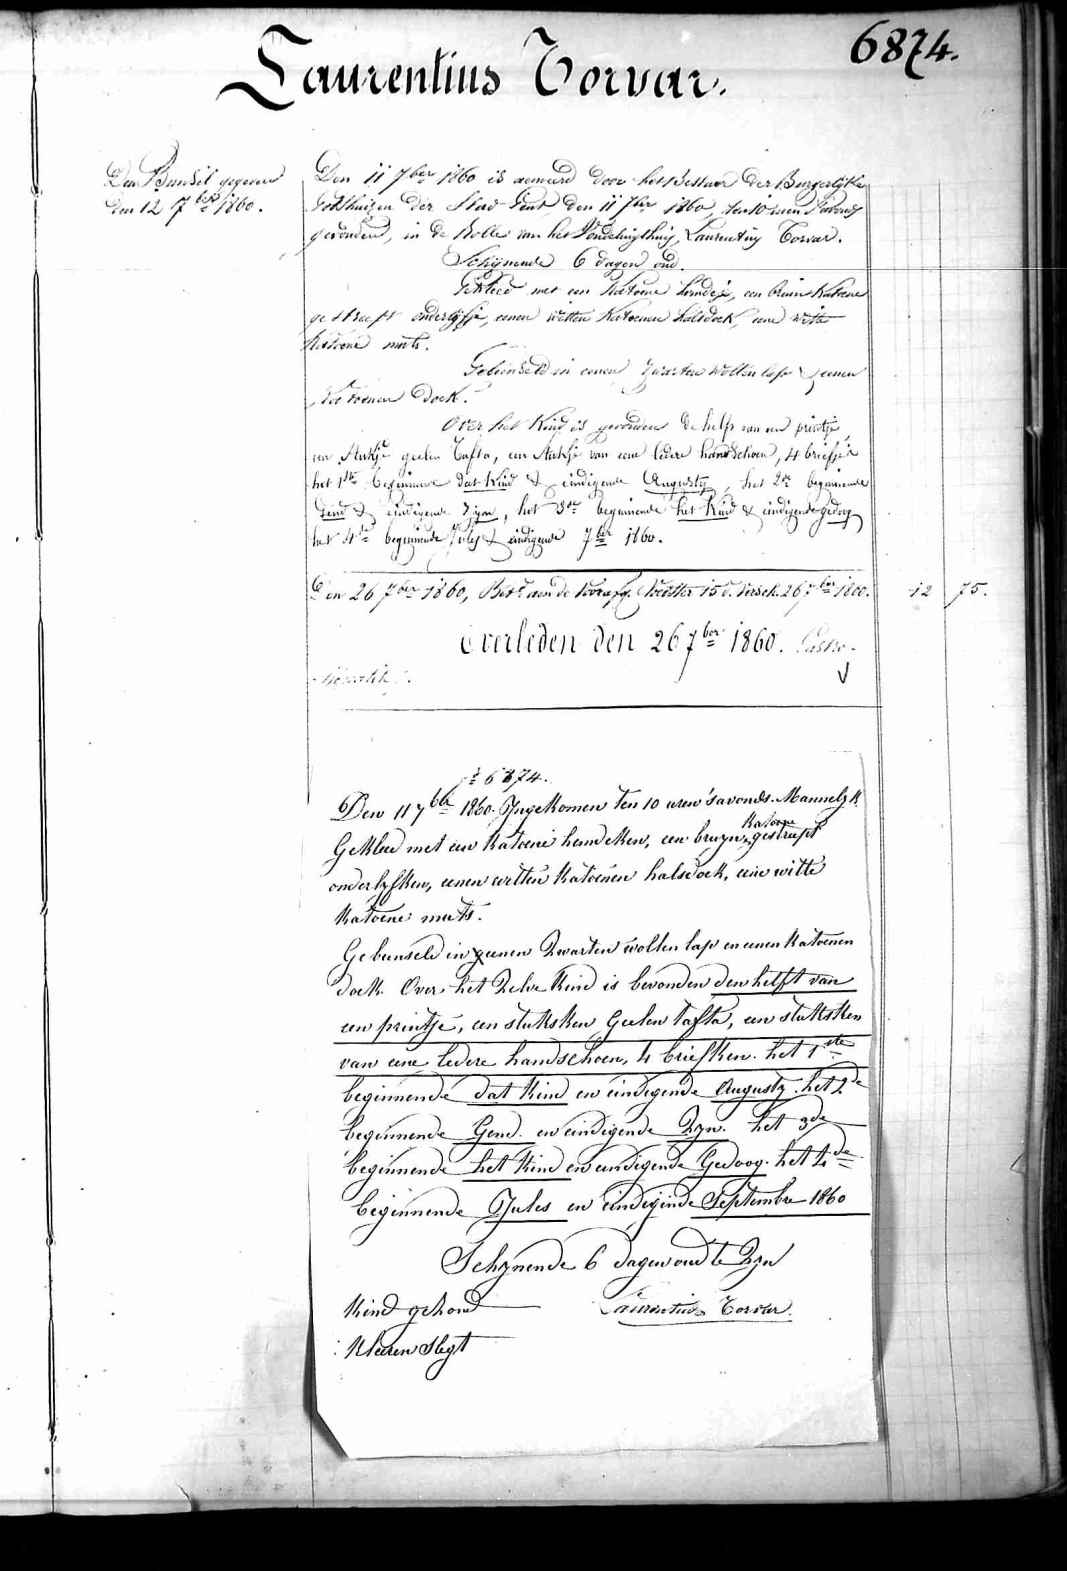 6874.
Laurentius Torvar.
Den Bundel gegeven
den 12 7ber 1860.
Den 11 7ber 1860 is aenveerd door het Bestuur der Burgerlijke
Godshuizen der Stad Gent, den 11 7ber 1860, ten 10 uren s'avonds
gevonden, in de Rolle van het Vondelingshuis, Laurentius Torvar.
Schijnende 6 dagen oud.
Gekleed met een katoene hemdeje, een bruin katoene
gestreept onderlijfje, eenen witten katoenen halsdoek, eene witte
katoene muts.
Gebunseld in eenen zwarten wollen lap & eenen
katoenen doek.
Over het Kind is gevonden de helft van een printje,
een stukje geelen Tafta, een stukje van eene ledere handschoen, 4 briefjes
het 1ste beginnende dat Kind & eindigende Augusty, het 2de beginnende
Gend & eindigende Zijn, het 3de beginnende het Kind & eindigende gedoog
het 4de beginnende Jules & eindigende 7ber 1860.
Den 26 7ber 1860, Bet. aen de voorafg. Voedster 15 d. versch. 26 7ber 1860. 12 75.
Overleden den 26 7ber 1860.
No 6874.
Den 11 7ber 1860. Ingekomen ten 10 uren s'avonds. Mannelyk.
Gekleed met een katoene hemdeken, een bruyn katoene gestreept
onderlyfken, eenen witten katoenen halsdoek, eene witte
katoene muts.
Gebunseld in eenen zwarten wollen lap en eenen katoenen
doek. Over het zelve kind is bevonden den helft van
een printje, een stuksken geelen tafta, een stuksken
van eene ledere handschoen, 4 briefken. het 1ste
beginnende dat kind en eindegende Augusty. het 2de
beginnende Gend. en eindigende Zyn. het 3de
beginnende het kind en eindigende Gedoog. het 4de
beginnende Jules en eindeginde Septembre 1860
Schynende 6 dagen oud te zyn
Kind gehond Laurentius Torvar.
Kleeren Slegt